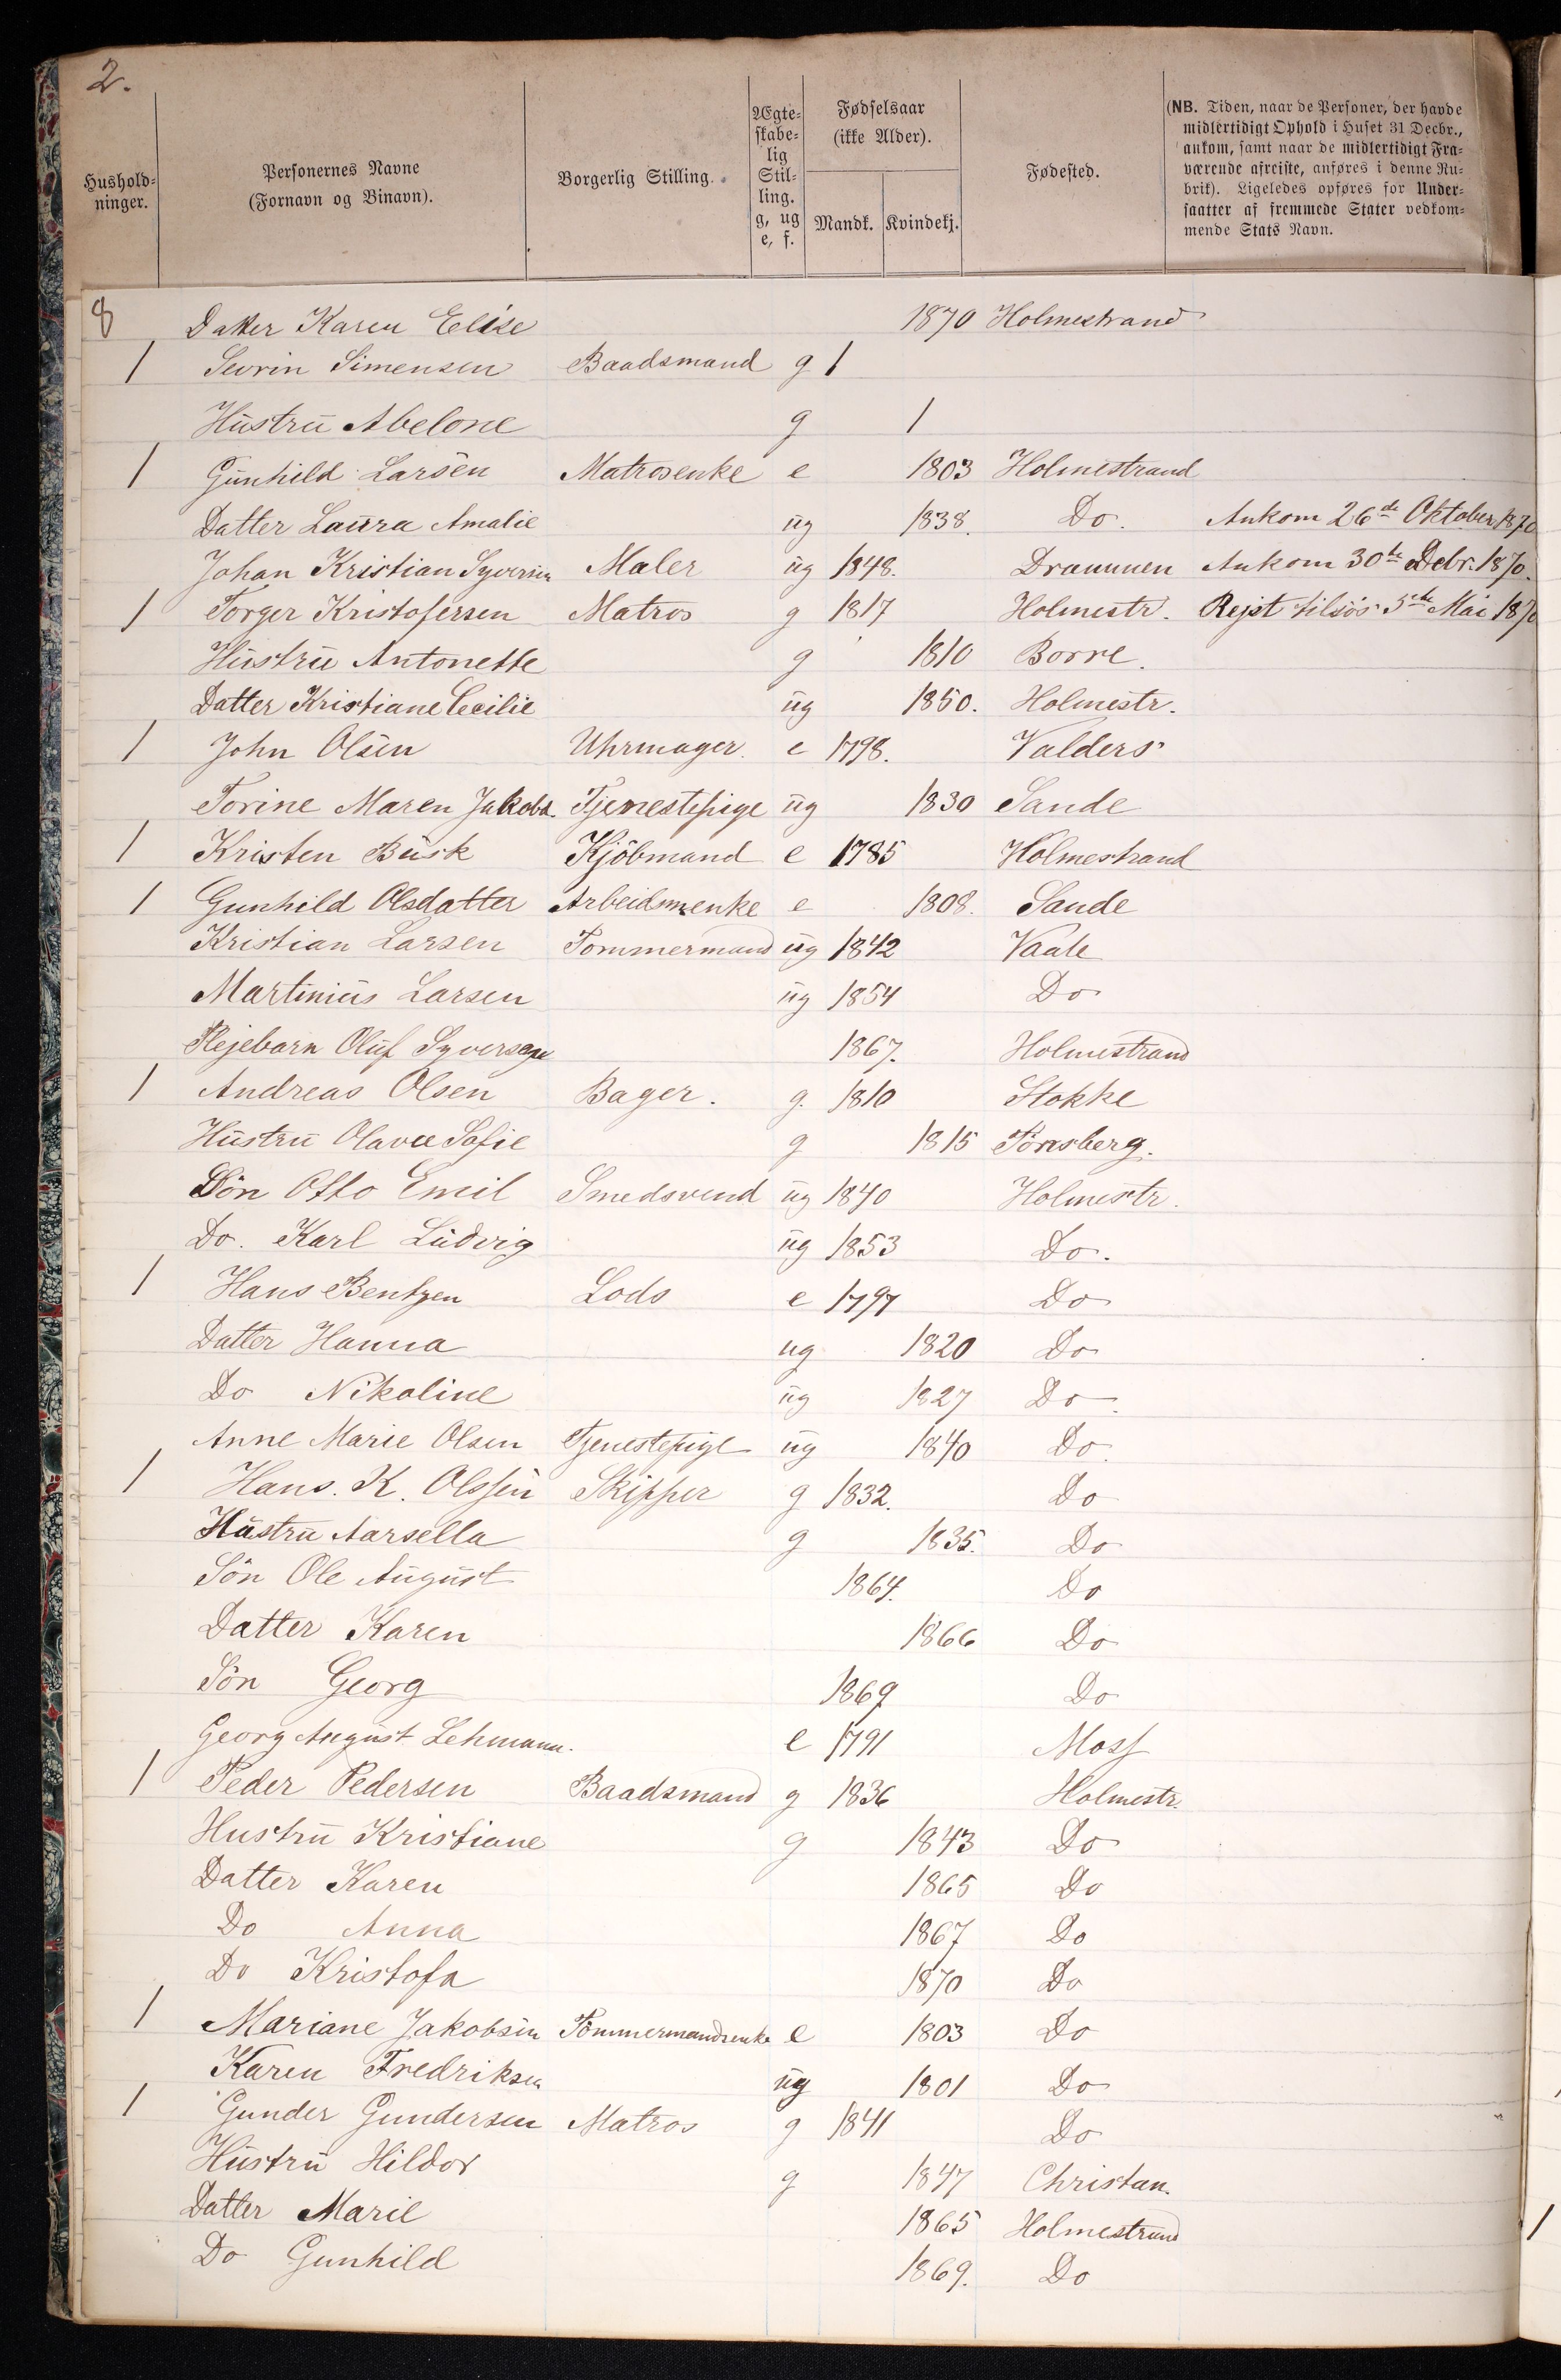 2.
Hushold-
ninger.
Personernes Navne
(Fornavn og Binavn).
Borgerlig Stilling.
Ægte-
skabe-
lig
Stil-
ling.
g, ug
e, f.
Fødselsaar
(ikke Alder).
Mandk. Kvindekj.
Fødested.
(NB. Tiden, naar de Personer, der havde
midlertidigt Ophold i Huset 31 Decbr.,
ankom, samt naar de midlertidigt Fra-
værende afreiste, anføres i denne Ru-
brik). Ligeledes opføres for Under-
saatter af fremmede Stater vedkom-
mende Stats Navn.
8 Datter Karen Elise 1870 Holmestrand
1 Sevrin Simensen Baadsmand g 1
Hustru Abelone g 1
1 Gunhild Larsen Matrosenke e 1803 Holmestrand
Datter Laura Amalie ug 1838. Do. Ankom 26de Oktober 1870
Johan Kristian Syversen Maler ug 1848. Drammen Ankom 30te Decbr. 1870.
1 Torger Kristofersen Matros g 1817 Holmestr. Rejst tilsös 5te Mai 1870
Hustru Antonette g 1810 Borre.
Datter Kristiane Cecilie ug 1850. Holmestr.
1 John Olsen Uhrmager. e 1798. Valders
Torine Maren Jakobs. Tjenestepige ug 1830 Sande
1 Kristen Busk Kjöbmand e 1785 Holmestrand
1 Gunhild Olsdatter Arbeidsmenke e 1808. Sande
Kristian Larsen Tommermand ug 1842 Vaale
Martinius Larsen ug 1854 Do
Plejebarn Oluf Syversen 1867. Holmestrand
1 Andreas Olsen Bager. g. 1810 Stokke
Hustru Olava Sofie g 1815 Tönsberg.
Sön Otto Emil Smedsvend ug 1840 Holmestr.
Do. Karl Ludvig ug 1853 Do.
1 Hans Bentzen Lods e 1797 Do
Datter Hanna ug 1820 Do
Do Nikoline ug 1827 Do.
Anne Marie Olsen Tjenestepige ug 1840 Do.
1 Hans. K. Olssen Skipper g 1832. Do
Hustru Aarsella g 1835. Do
Sön Ole August 1864. Do
Datter Karen 1866 Do
Sön Georg 1869 Do
Georg August Lehmann. e 1791 Moss
1 Peder Pedersen Baadsmand g 1836 Holmestr.
Hustru Kristiane g 1843 Do
Datter Karen 1865 Do
Do Anna 1867 Do
Do Kristofa 1870 Do
1 Mariane Jakobsen Tömmermandsenke e 1803 Do
Karen Fredriksen ug 1801 Do
1 Gunder Gundersen Matros g 1841 Do
Hustru Hildor g 1847 Christan.
Datter Marie 1865 Holmestrand
Do Gunhild 1869. Do